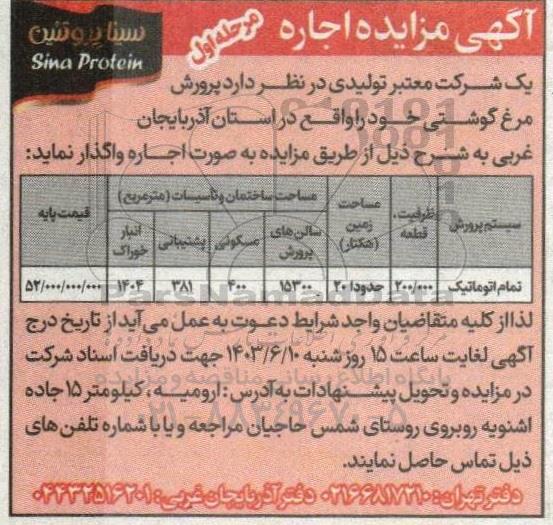 آگهی مزایده اجاره
مرحله اول
سینا پروتئین
Sina Protein
یک شرکت معتبر تولیدی در نظر دارد پرورش
مرغ گوشتی خود را واقع در استان آذربایجان
غربی به شرح ذیل از طریق مزایده به صورت اجاره واگذار نماید:
سیستم پرورش
ظرفیت، قطعه
مساحت زمین (هکتار)
مساحت ساختمان و تاسیسات (مترمربع)
قیمت پایه
سالن های پرورش
مسکونی
پشتیبانی
انبار خوراک
تمام اتوماتیک ۲۰۰/۰۰۰ حدودا ۲۰ ۱۵۳۰۰ ۴۰۰ ۳۸۱ ۱۴۰۴ ۵۲/۰۰۰/۰۰۰/۰۰۰
لذا از کلیه متقاضیان واجد شرایط دعوت به عمل می آید از تاریخ درج
آگهی لغایت ساعت ۱۵ روز شنبه ۱۴۰۳/۶/۱۰ جهت دریافت اسناد شرکت
در مزایده و تحویل پیشنهادات به آدرس: ارومیه، کیلومتر ۱۵ جاده
اشنویه روبروی روستای شمس حاجیان مراجعه و یا با شماره تلفن های
ذیل تماس حاصل نمایند.
دفتر تهران: ۰۲۱۶۶۸۱۷۲۱۰ دفتر آذربایجان غربی: ۰۴۴۳۲۵۱۶۲۰۱
ParsNamadData
پایگاه اطلاع رسانی مناقصه و مزایده
۰۲۱-۸۸۳۴۹۶۷۰-۵